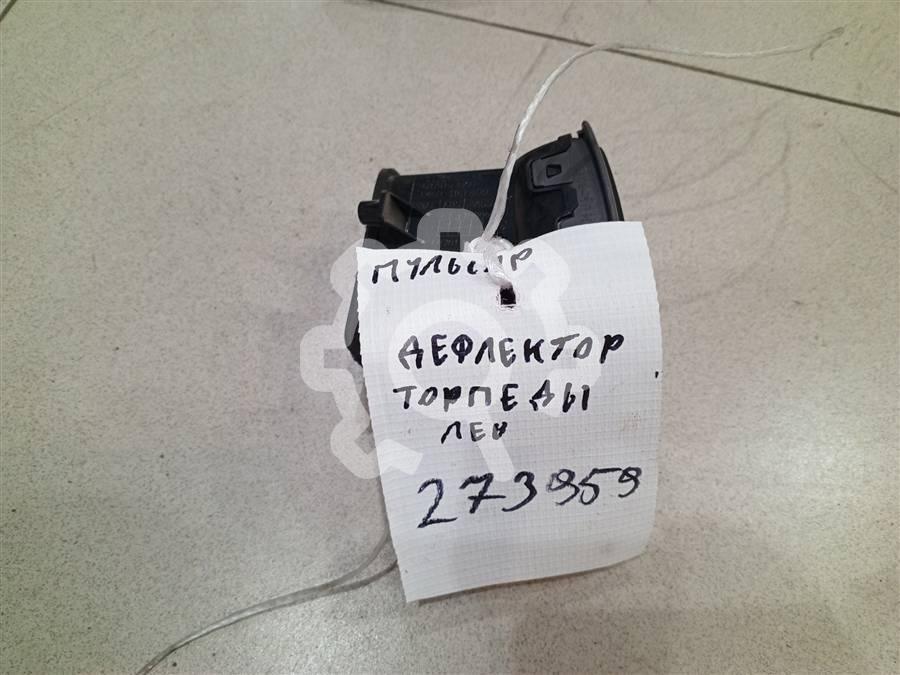 ПУЛЬСАР
ДЕФЛЕКТОР
ТОРПЕДЫ
ЛЕВ
273959